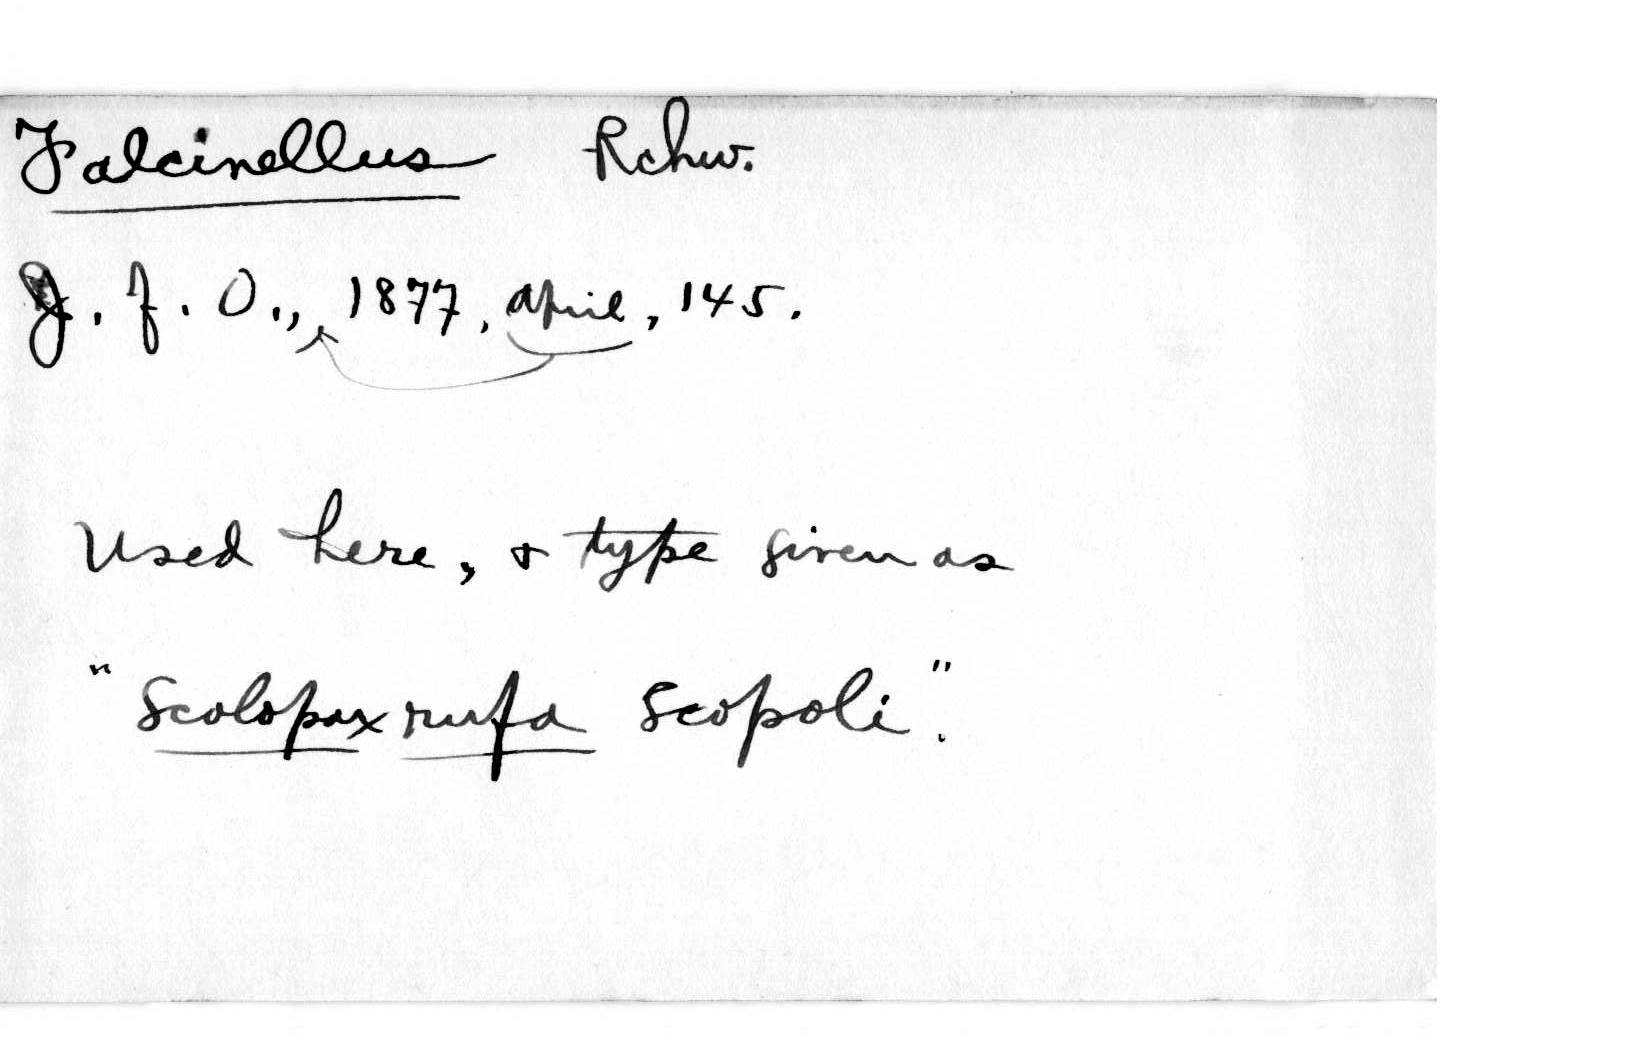 Falcinellus Rchw.
J. f. O., 1877, April, 145.
Used here, & type given as
"Scolopax rufa Scopoli".